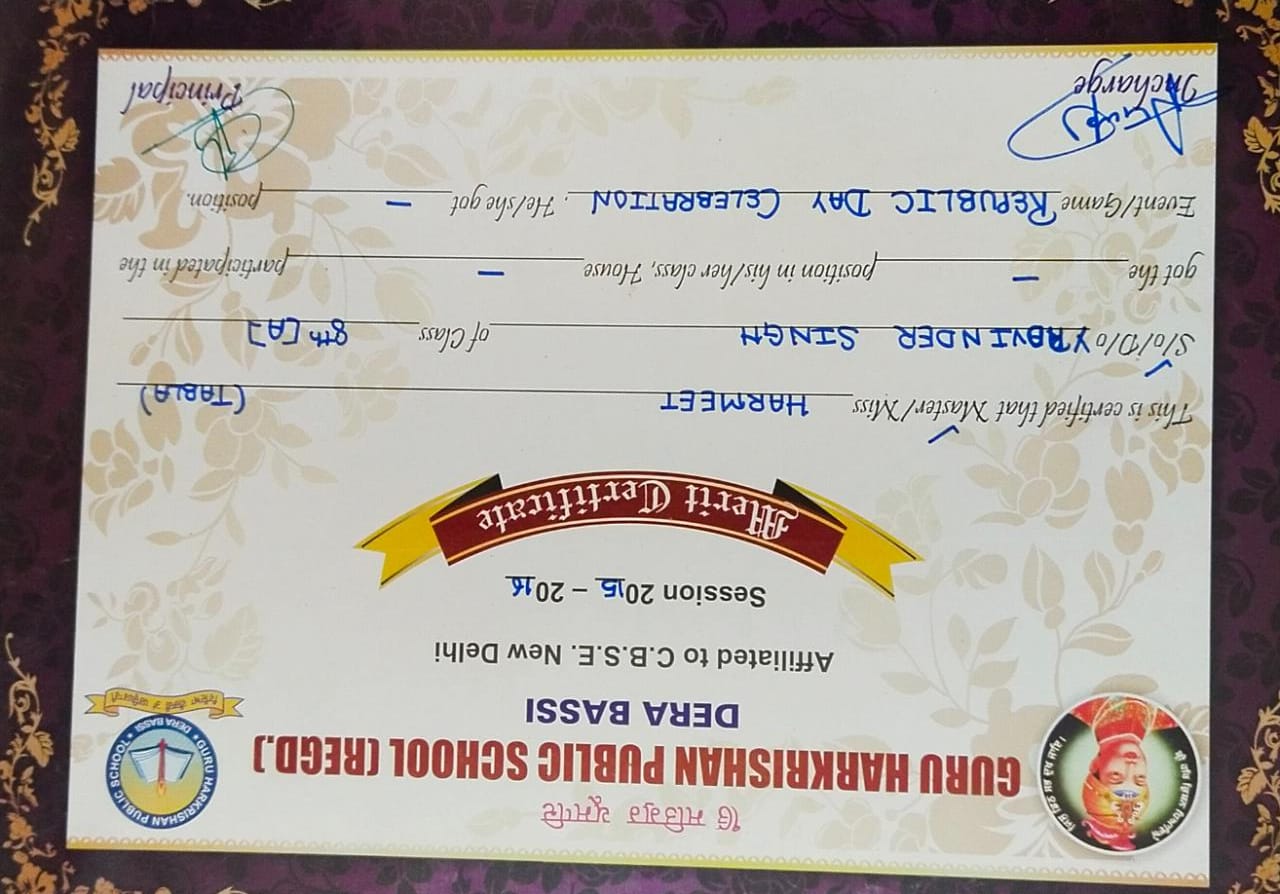 ੴ ਸਤਿਗੁਰ ਪ੍ਰਸਾਦਿ
GURU HARKRISHAN PUBLIC SCHOOL (REGD.)
DERA BASSI
GURU HARKRISHAN PUBLIC SCHOOL
DERA BASSI
Affiliated to C.B.S.E. New Delhi
Session 2015 – 2016
Merit Certificate
This is certified that Master/Miss HARMEET (TABLA)
S/o/D/o RAVINDER SINGH of Class 8th [A]
got the – position in his/her class, House – participated in the
Event/Game REPUBLIC DAY CELEBRATION . He/she got – position.
Incharge Principal